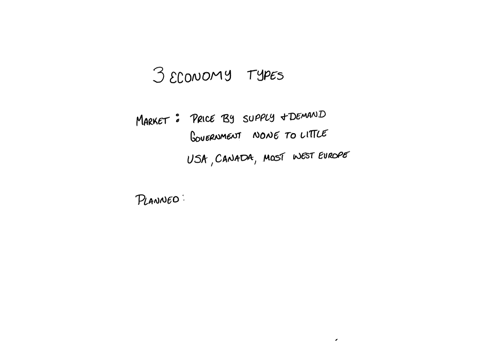 3 ECONOMY TYPES
MARKET: PRICE BY SUPPLY & DEMAND
GOVERNMENT NONE TO LITTLE
USA, CANADA, MOST WEST EUROPE
PLANNED: